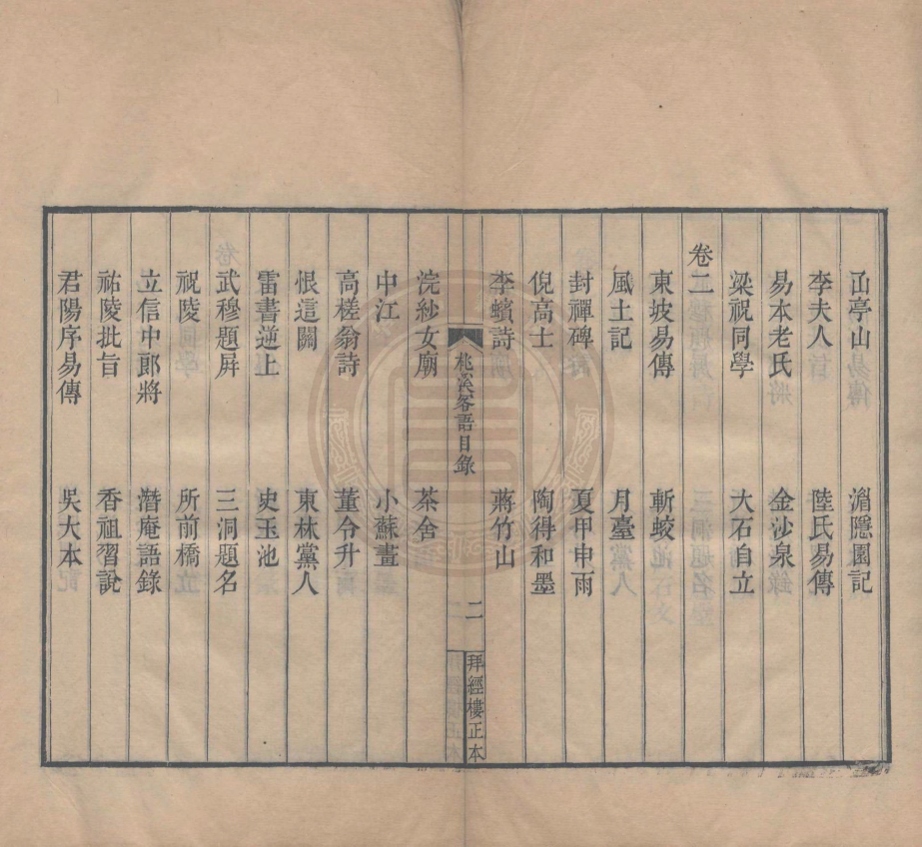 山亭山　湄隱園記
李夫人　陸氏易傳
易本老氏　金沙泉
梁祝同學　大石自立
卷二
東坡易傳　斬蛟
風土記　月臺
封禪碑　夏甲申雨
倪高士　陶得和墨
李蠙詩　蔣竹山
桃溪客語目錄　二　拜經樓正本
浣紗女廟　茶舍
中江　小蘇畫
高槎翁詩　董令升
恨這關　東林黨人
雷書逆上　史玉池
武穆題屏　三洞題名
祝陵　所前橋
立信中郎將　潛庵語錄
祐陵批旨　香祖習說
君陽序易傳　吳大本